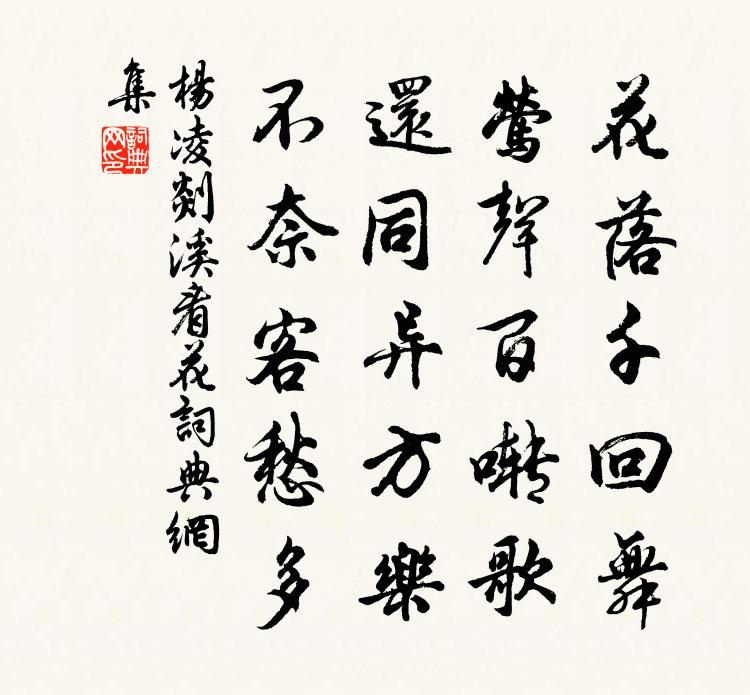 花落千回舞
鶯聲百囀歌
還同异方樂
不奈客愁多
楊凌剡溪看花詞典網
集
詞典
网印